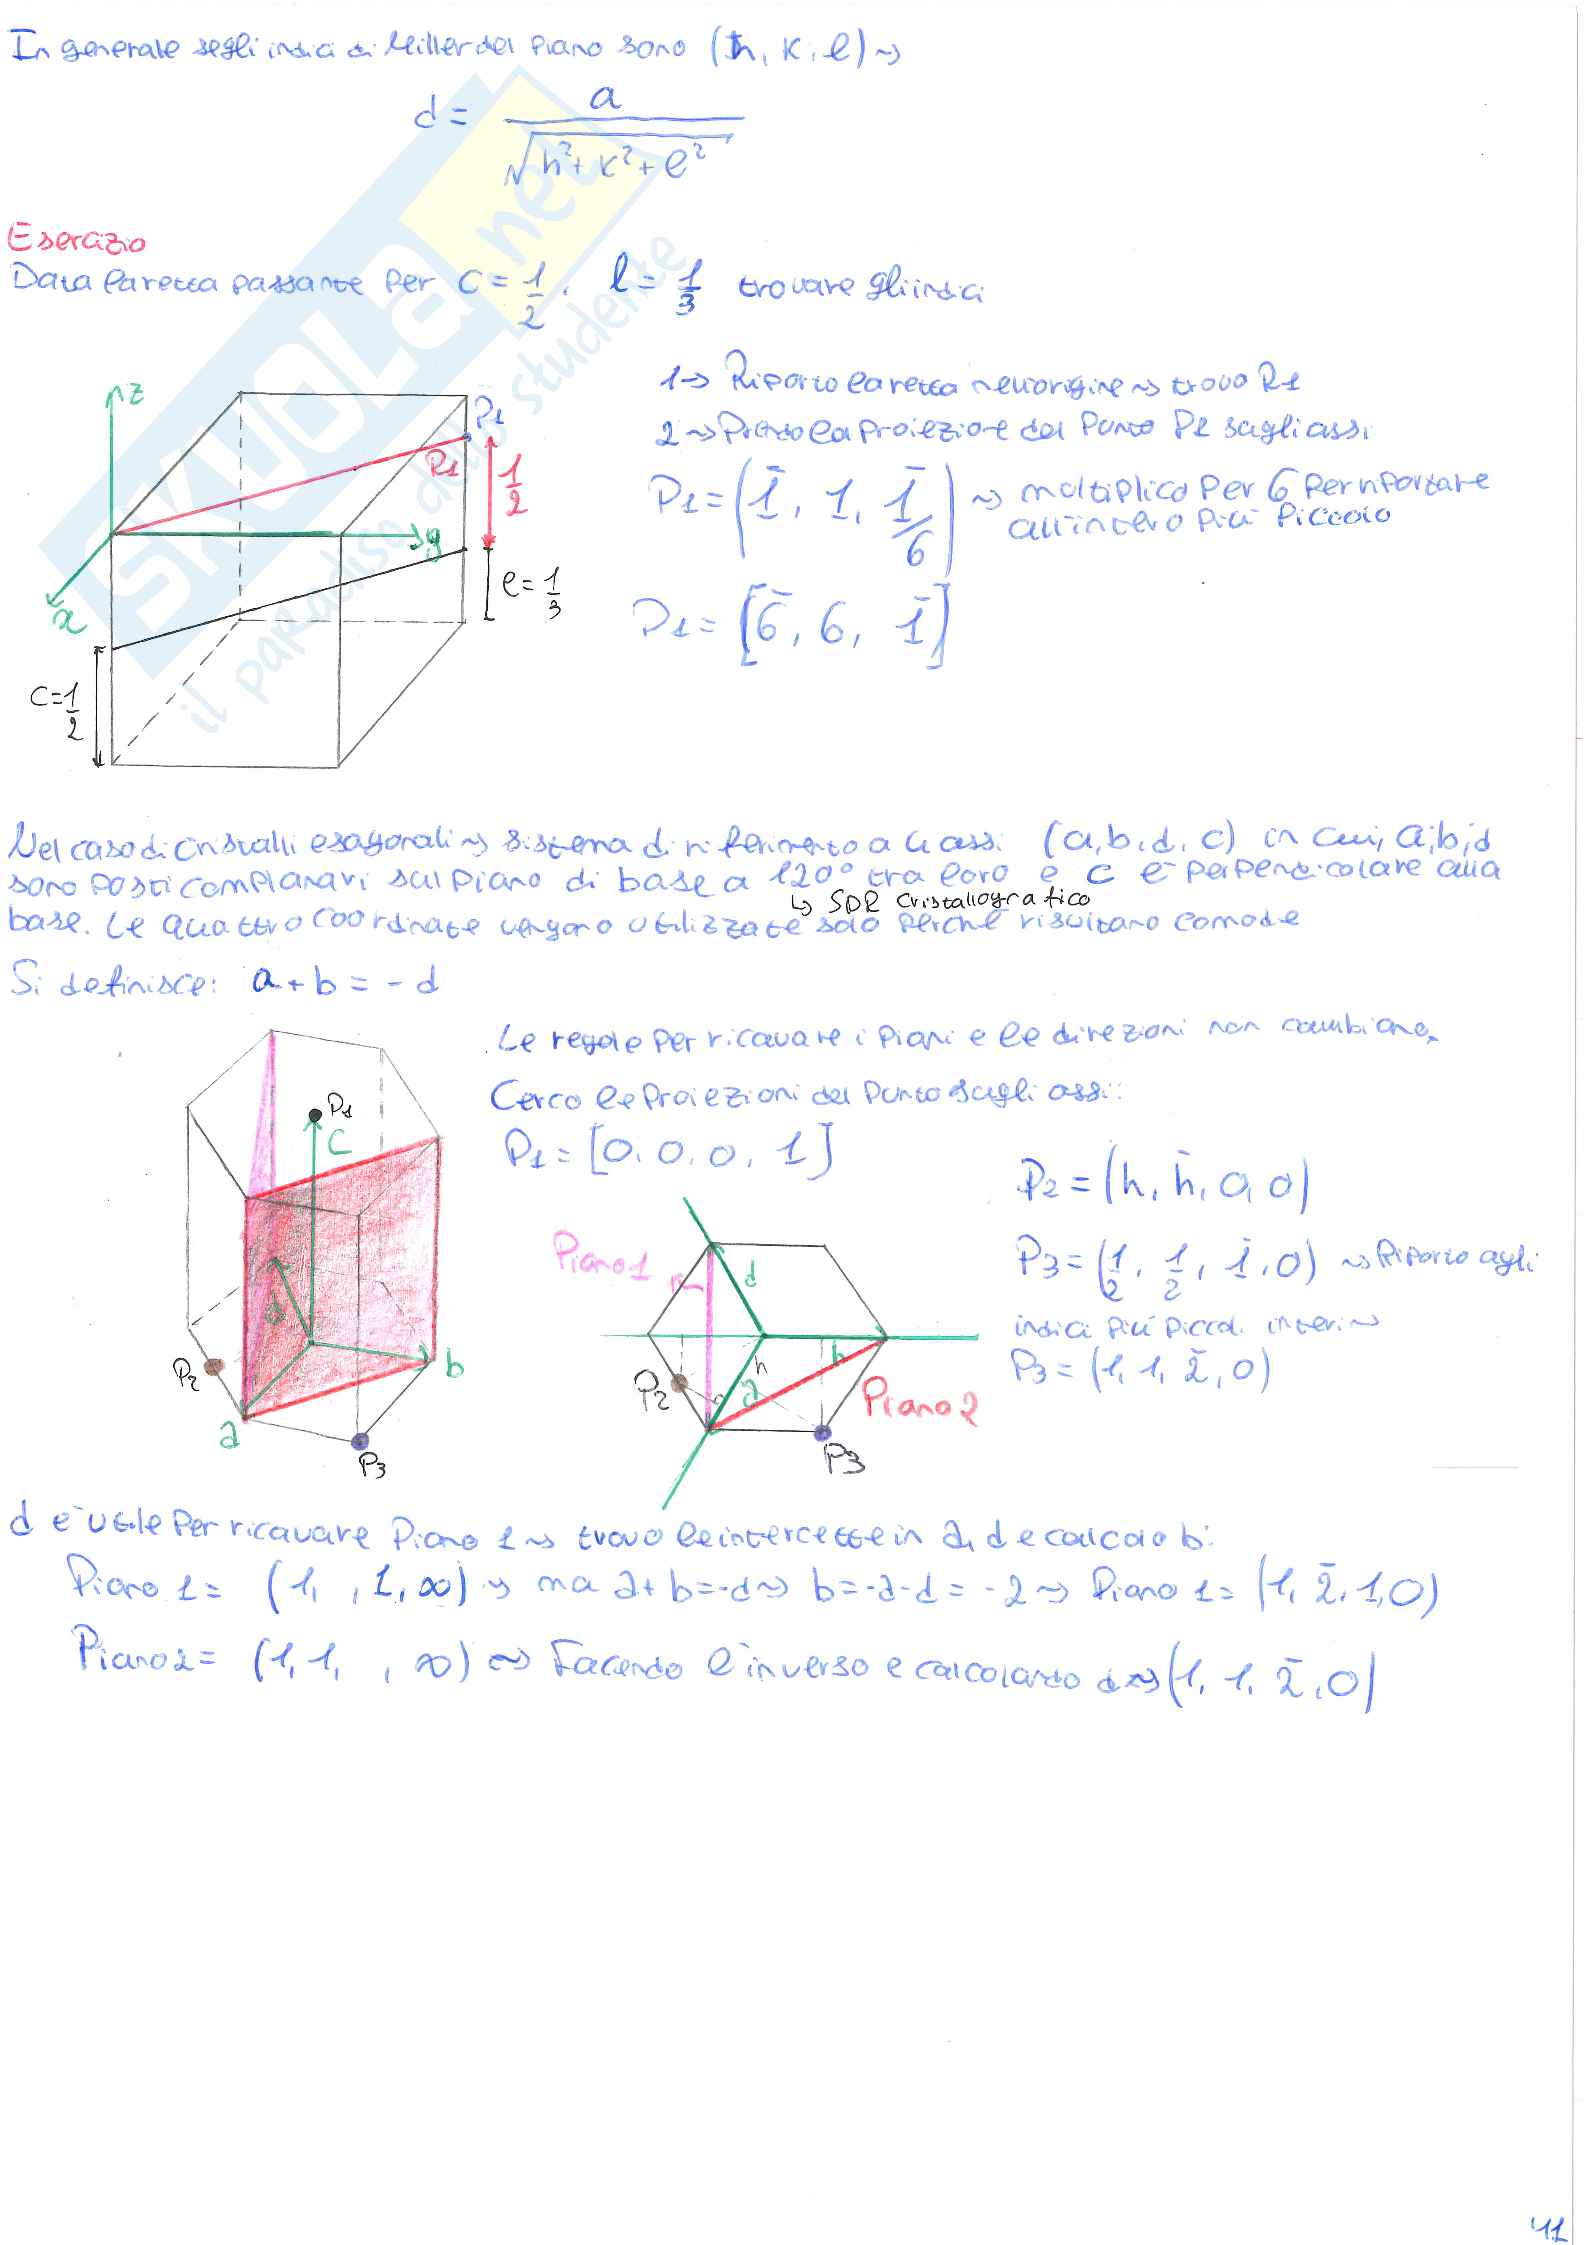 In generale se gli indici di Miller del piano sono (h, k, l) ⇝
d = a / √(h²+k²+l²)
Esercizio
Data la retta passante per c = 1/2, l = 1/3 trovare gli indici
1→ Riporto la retta nell'origine ⇝ trovo R1
2⇝ Prendo la proiezione del punto P1 sugli assi
P1 = (1̄, 1, 1̄/6) ⇝ moltiplico per 6 per riportare
all'intero più piccolo
P1 = [6̄, 6, 1̄]
z
P1
R1
1/2
y
x
l = 1/3
c = 1/2
Nel caso di cristalli esagonali ⇝ sistema di riferimento a 4 assi (a, b, d, c) in cui, a, b, d
sono posti complanari sul piano di base a 120° tra loro e c è perpendicolare alla
↳ SDR cristallografico
base. Le quattro coordinate vengono utilizzate solo perché risultano comode
Si definisce: a + b = - d
Le regole per ricavare i piani e le direzioni non cambiano.
Cerco le proiezioni del punto sugli assi:
P1 = [0, 0, 0, 1]
P2 = (h, h̄, 0, 0)
P3 = (1/2, 1/2, 1̄, 0) ⇝ Riporto agli
indici più piccoli interi ⇝
P3 = (1, 1, 2̄, 0)
P1
c
d
b
a
P2
P3
Piano 1
d
h
b
a
P2
Piano 2
P3
d è utile per ricavare Piano 1 ⇝ trovo le intercette in a, d e calcolo b:
Piano 1 = (1, , 1, ∞) ⇝ ma a + b = -d ⇝ b = -a - d = -2 ⇝ Piano 1 = (1, 2̄, 1, 0)
Piano 2 = (1, 1, , ∞) ⇝ Facendo l'inverso e calcolando d ⇝ (1, 1, 2̄, 0)
41
SKUOLA.net
il paradiso dello studente